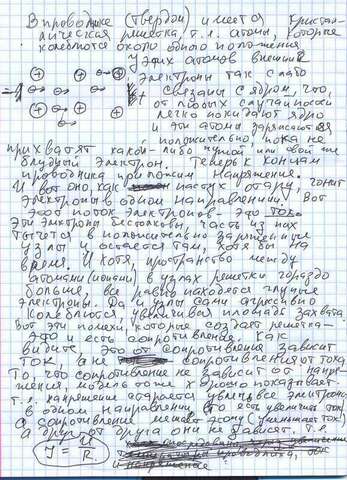 В проводнике (твердом) имеется кристал-
лическая решетка, т.е. атомы, которые
колеблются около одного положения.
У этих атомов внешние
электроны так слабо
связаны с ядром, что,
от любых случайностей
легко покидают ядро
и эти атомы заряжаются
положительно, пока не
прихватят какой-либо чужой или свой же
блудный электрон. Теперь к концам
проводника приложим напряжение.
И вот оно, как пастух отару, гонит
электроны в одном направлении. Вот
этот поток электронов - это ток.
Эти электроны бестолковы, часть из них
тычется в положительно заряженные
узлы и остается там, хотя бы на
время. И хотя, пространство между
атомами (ионами) в узлах решетки гораздо
больше, все равно находятся глупые
электроны. Да и узлы сами
колеблются, увеличивая площадь захвата.
Вот эти помехи, которые создает решетка -
это и есть сопротивление. Как
видите, от сопротивления зависит
ток, а не сопротивление от тока.
То, что сопротивление не зависит от напря-
жения, модель тоже хорошо показывает.
т.е. напряжение старается увлечь все электроны
в одном направлении, то есть увеличить ток,
а сопротивление мешает этому (уменьшает ток)
а друг от друга они не зависят, т.е.
J = U/R